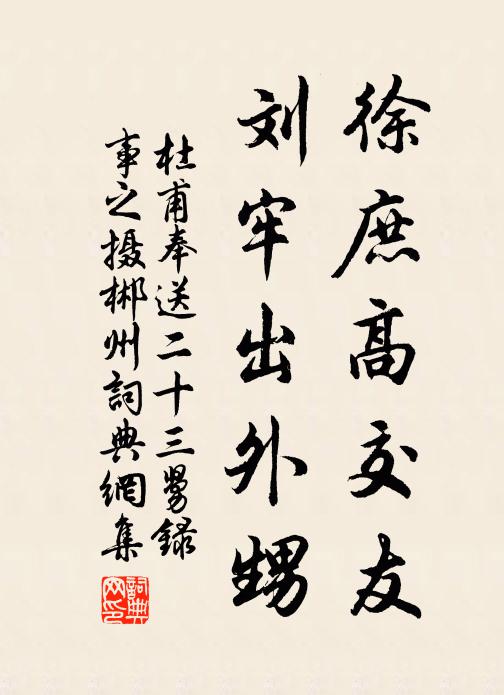 徐庶高交友
刘牢出外甥
杜甫奉送二十三舅录
事之摄郴州词典网集
词典网印